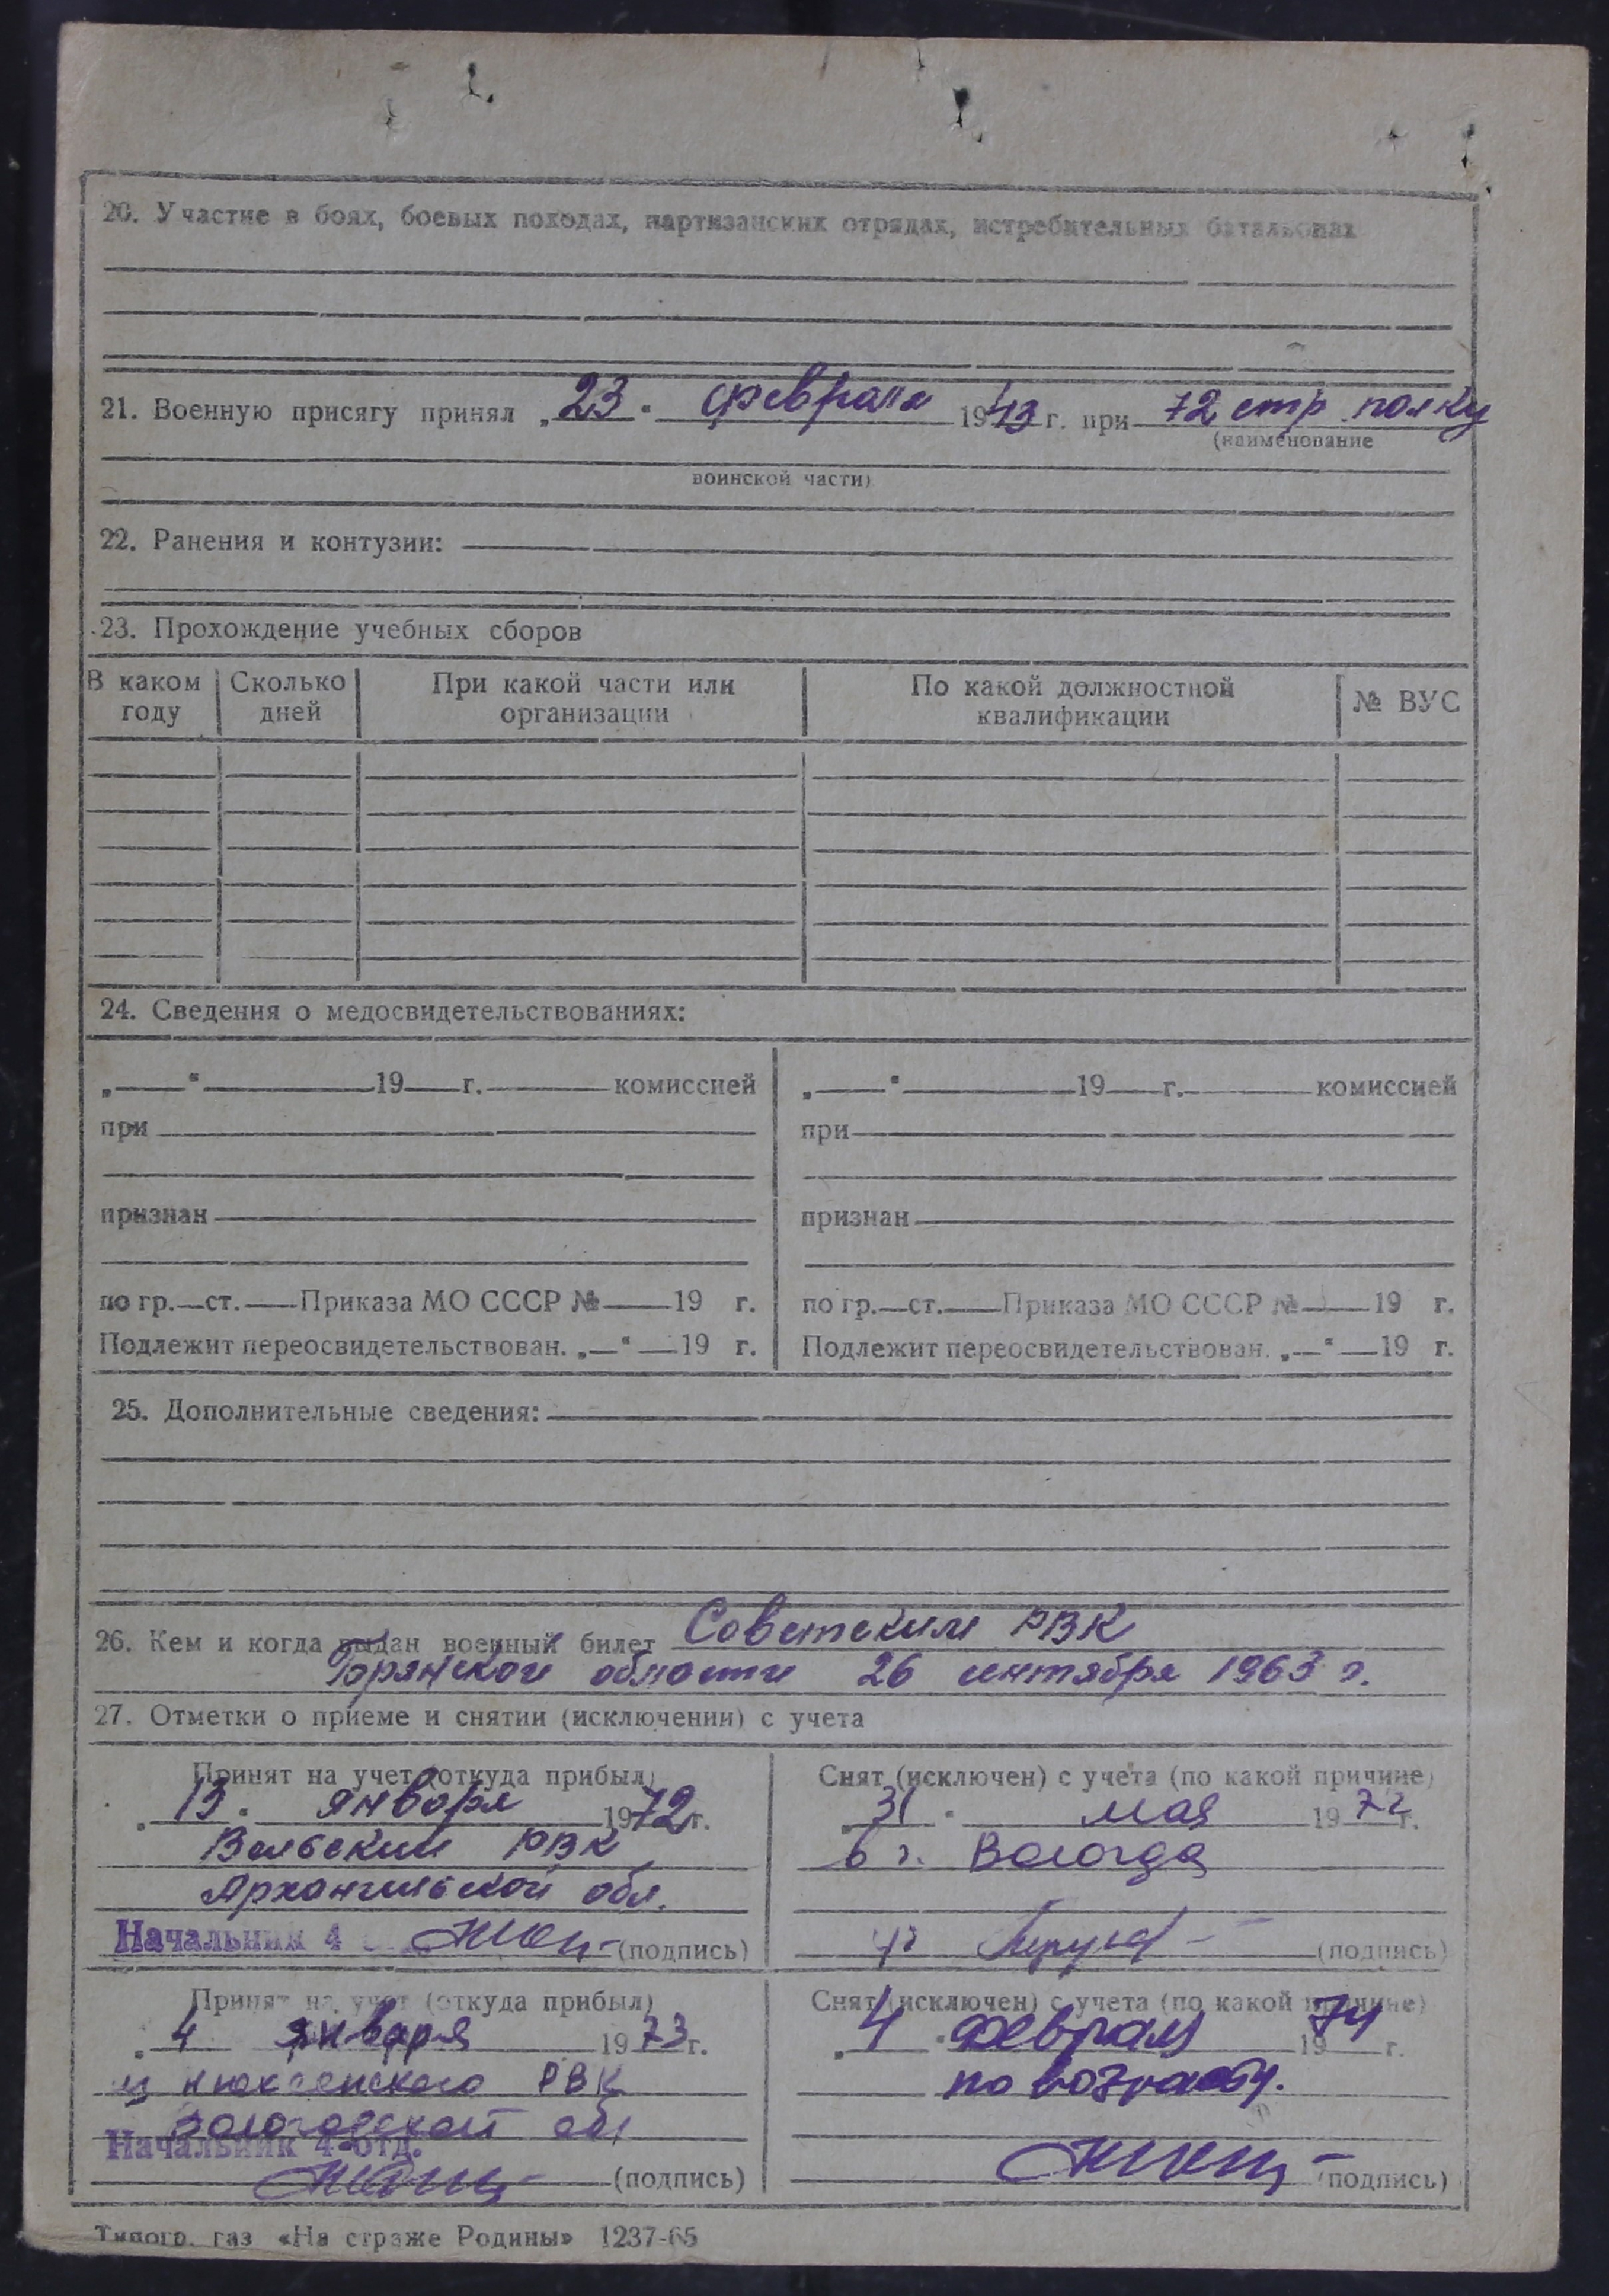 20. Участие в боях, боевых походах, партизанских отрядах, истребительных батальонах
21. Военную присягу принял „23“ февраля 1943 г. при 72 стр. полку
(наименование
воинской части)
22. Ранения и контузии:
23. Прохождение учебных сборов
В каком году | Сколько дней | При какой части или организации | По какой должностной квалификации | № ВУС
24. Сведения о медосвидетельствованиях:
„ “ 19 г. комиссией
при
признан
по гр. ст. Приказа МО СССР № 19 г.
Подлежит переосвидетельствован. „ “ 19 г.
„ “ 19 г. комиссией
при
признан
по гр. ст. Приказа МО СССР № 19 г.
Подлежит переосвидетельствован. „ “ 19 г.
25. Дополнительные сведения:
26. Кем и когда выдан военный билет Советским РВК
Брянской области 26 сентября 1963 г.
27. Отметки о приеме и снятии (исключении) с учета
Принят на учет (откуда прибыл)
„13“ января 1972 г.
Вельский РВК
Архангельской обл.
Начальник 4 (подпись)
Снят (исключен) с учета (по какой причине)
„31“ мая 1972 г.
в г. Вологда
(подпись)
Принят на учет (откуда прибыл)
„4 января 1973 г.
из Нюксенского РВК
Вологодской обл
Начальник 4 отд.
(подпись)
Снят (исключен) с учета (по какой причине)
„4“ февраля 1974 г.
по возрасту.
(подпись)
Типогр. газ «На страже Родины» 1237-65